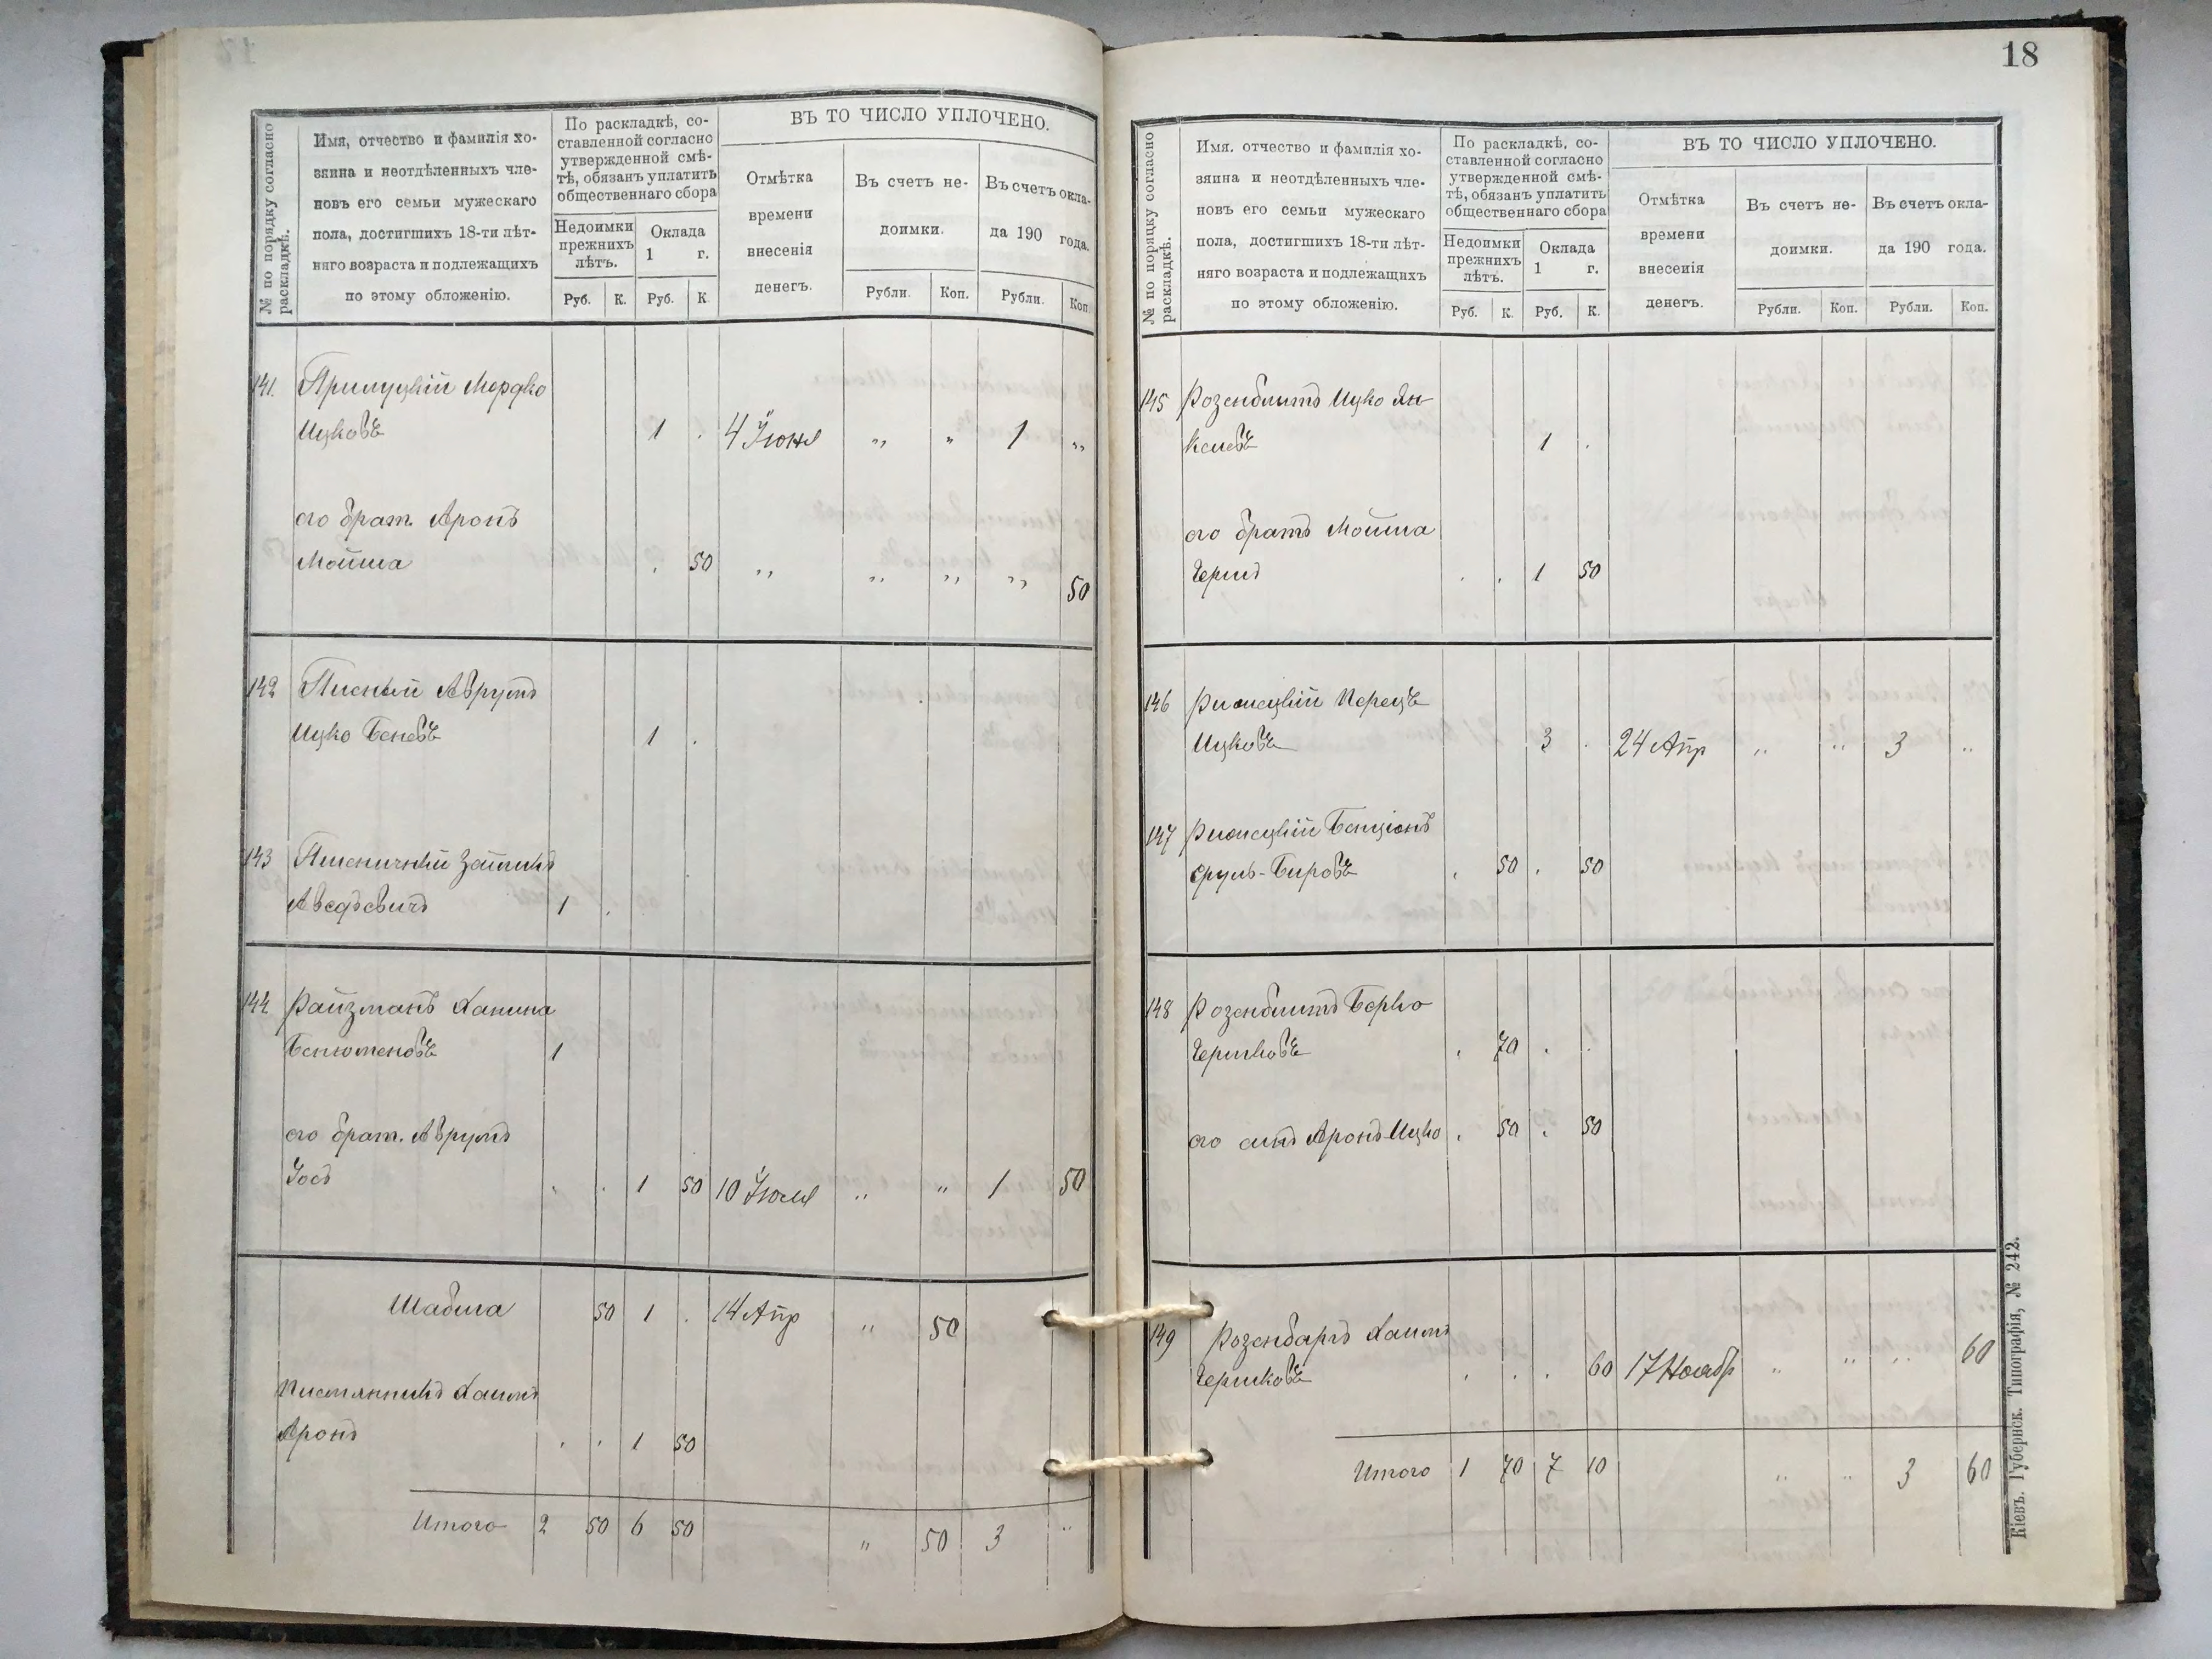 18
№ по порядку согласно раскладкѣ.
Имя, отчество и фамилія хо-
зяина и неотдѣленныхъ чле-
новъ его семьи мужескаго
пола, достигшихъ 18-ти лѣт-
няго возраста и подлежащихъ
по этому обложенію.
По раскладкѣ, со-
ставленной согласно
утвержденной смѣ-
тѣ, обязанъ уплатить
общественнаго сбора
Недоимки
прежнихъ
лѣтъ.
Оклада
1 г.
Руб. К. Руб. К.
ВЪ ТО ЧИСЛО УПЛОЧЕНО.
Отмѣтка
времени
внесенія
денегъ.
Въ счетъ не-
доимки.
Въ счетъ окла-
да 190 года.
Рубли. Коп. Рубли. Коп.
141. Прилуцкій Мордко
Ицковъ 1 . 4 Іюня „ „ 1 „
его брат. Аронъ
Мойша . 50 „ „ „ „ 50
142 Писный Аврумъ
Ицко Беневъ 1 .
143 Пшеничный Зайвилъ
1 .
144 Райзманъ Ханина
Бенюменовъ 1
его брат. Аврумъ
Іосъ . . 1 50 10 Іюля „ „ 1 50
Шабша 50 1 . 14 Апр „ 50
Письменникъ Хаимъ
Аронъ . . 1 50
Итого 2 50 6 50 „ 50 3 „
№ по порядку согласно раскладкѣ.
Имя. отчество и фамилія хо-
зяина и неотдѣленныхъ чле-
новъ его семьи мужескаго
пола, достигшихъ 18-ти лѣт-
няго возраста и подлежащихъ
по этому обложенію.
По раскладкѣ, со-
ставленной согласно
утвержденной смѣ-
тѣ, обязанъ уплатить
общественнаго сбора
Недоимки
прежнихъ
лѣтъ.
Оклада
1 г.
Руб. К. Руб. К.
ВЪ ТО ЧИСЛО УПЛОЧЕНО.
Отмѣтка
времени
внесенія
денегъ.
Въ счетъ не-
доимки.
Въ счетъ окла-
да 190 года.
Рубли. Коп. Рубли. Коп.
145 Розенблитъ Ицко Ян-
келевъ 1 .
его братъ Мойша
Гершъ . . 1 50
146 Ржищкій Перецъ
Ицковъ 3 . 24 Апр „ „ 3 „
147 Ржищкій Бенціонъ
Сруль-Беровъ . 50 . 50
148 Розенблитъ Берко
Гершковъ . 70 . .
его сынъ Аронъ Ицко . 50 . 50
149 Розенбаргъ Хаимъ
Гершковъ . . . 60 17 Ноябр „ „ „ 60
Итого 1 70 7 10 „ „ 3 60
Кіевъ. Губернск. Типографія, № 242.